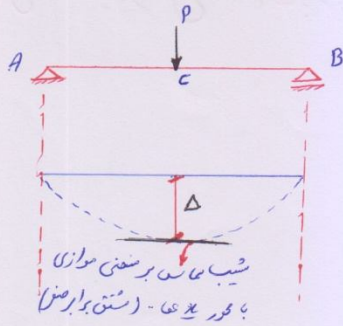 P
A B
C
Δ
شیب مماس بر منحنی موازی
با محور xها - (مشتق برابر صفر)